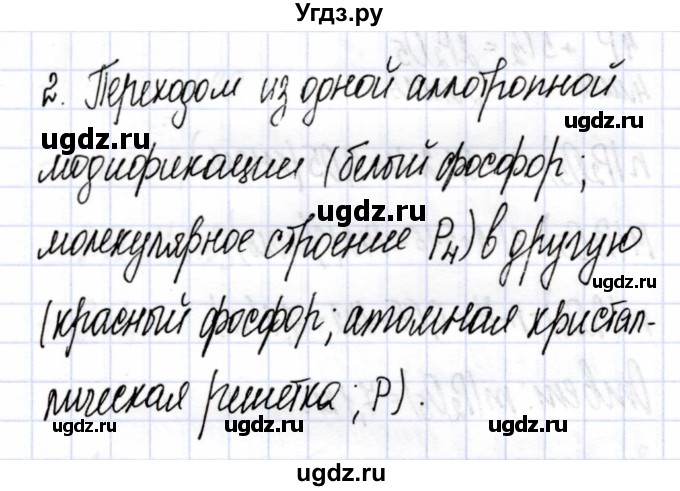 Угдз.ру
2. Переходом из одной аллотропной
ugdz.ru ugdz.ru
модификации (белый фосфор;
ugdz.ru
молекулярное строение P₄) в другую
ugdz.ru ugdz.ru
(красный фосфор; атомная кристал-
лическая решетка; P).
ugdz.ru ugdz.ru ugdz.ru
ugdz.ru